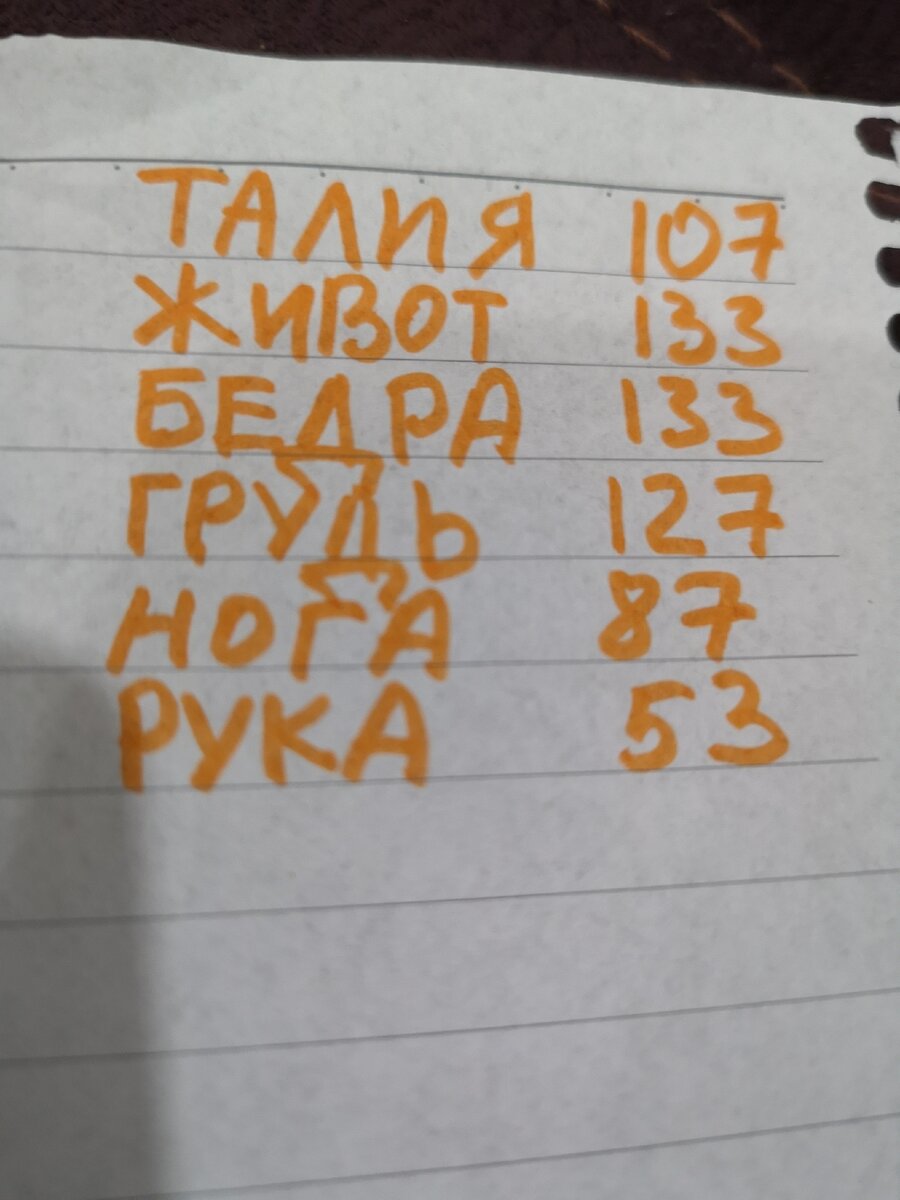 ТАЛИЯ 107
ЖИВОТ 133
БЕДРА 133
ГРУДЬ 127
НОГА 87
РУКА 53